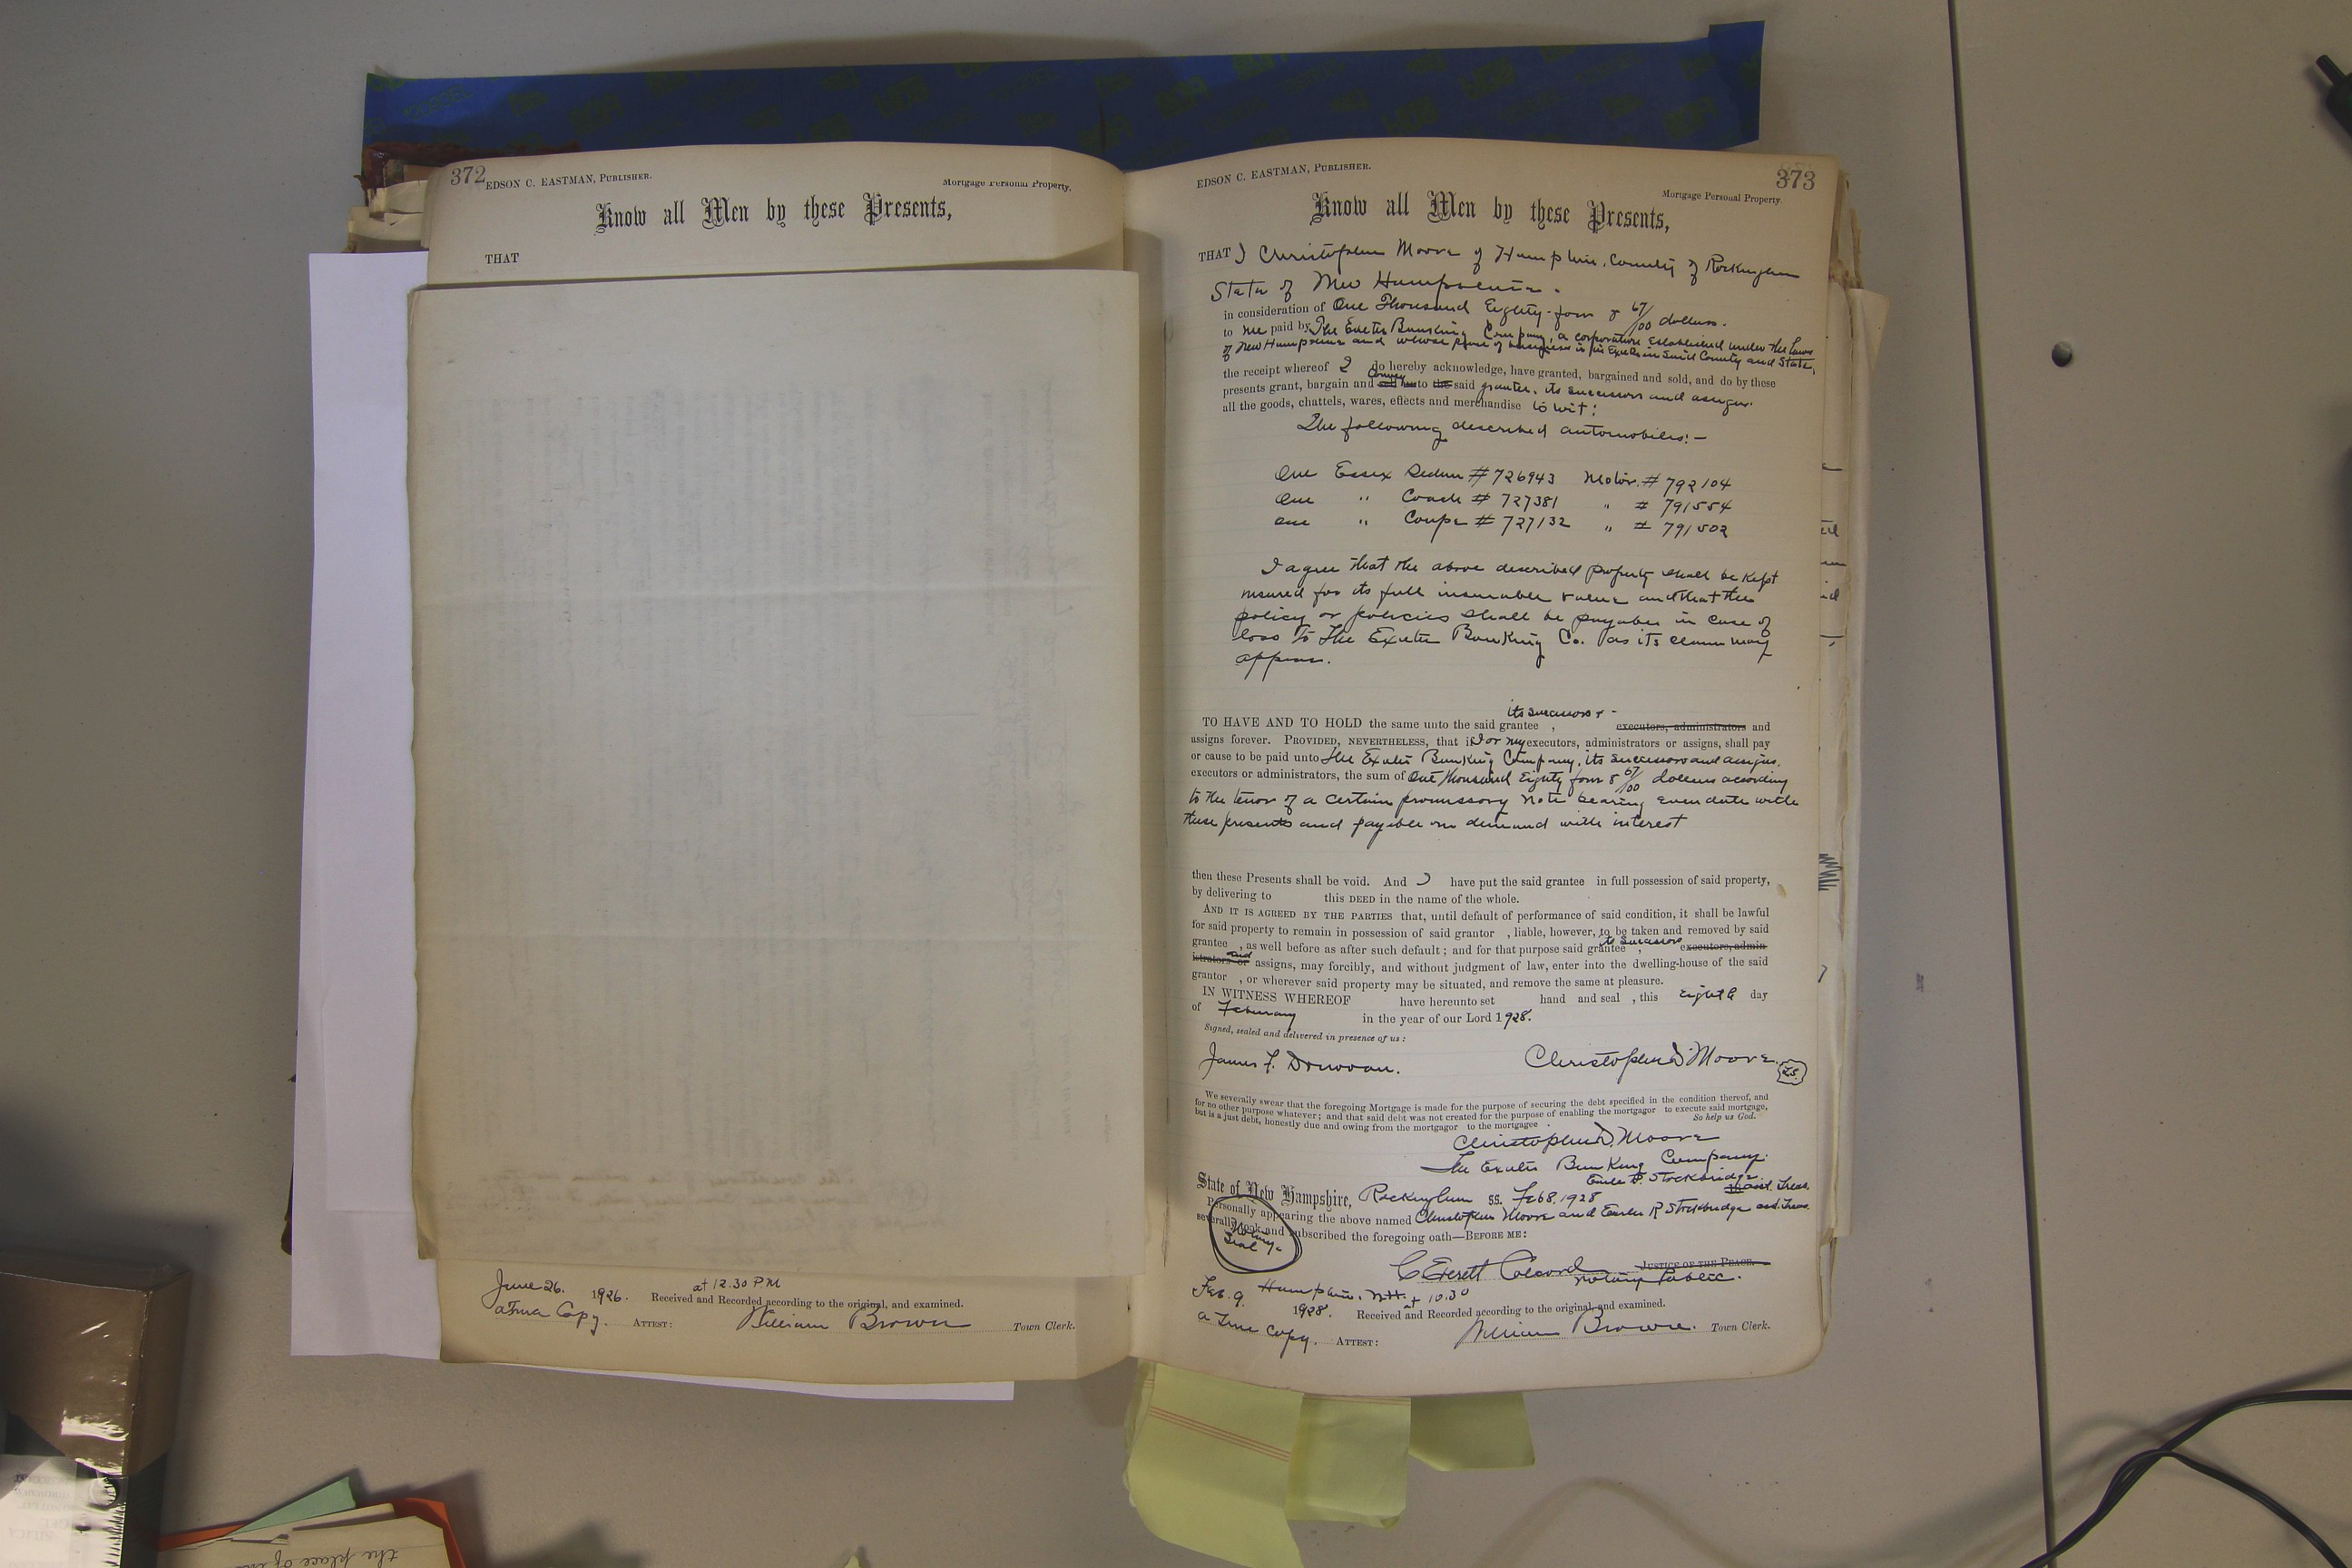 372
EDSON C. EASTMAN, PUBLISHER.
Mortgage Personal Property.
Know all Men by these Presents,
THAT
June 26. 1926. at 12.30 PM
Received and Recorded according to the original, and examined.
a True Copy. ATTEST: William Brown Town Clerk.
EDSON C. EASTMAN, PUBLISHER.
373
Mortgage Personal Property.
Know all Men by these Presents,
THAT I Christopher Moore of Hampton, County of Rockingham
State of New Hampshire.
in consideration of One Thousand Eighty-four & 67/100 dollars.
to me paid by The Exeter Banking Company, a corporation established under the Laws
of New Hampshire and whose place of business is in Exeter in Said County and State,
the receipt whereof I do hereby acknowledge, have granted, bargained and sold, and do by these
presents grant, bargain and Convey sell unto the said grantee, its successors and assigns.
all the goods, chattels, wares, effects and merchandise to wit:
The following described automobiles:-
One Essex Sedan # 726943 Motor. # 792104
One " Coach # 727381 " # 791554
One " Coupe # 727132 " # 791502
I agree that the above described property shall be kept
insured for its full insurable value and that the
policy or policies shall be payable in case of
loss to The Exeter Banking Co. as its claim may
appear.
its successors &
TO HAVE AND TO HOLD the same unto the said grantee , executors, administrators and
assigns forever. PROVIDED, NEVERTHELESS, that if I or my executors, administrators or assigns, shall pay
or cause to be paid unto The Exeter Banking Company, its successors and assigns.
executors or administrators, the sum of One thousand Eighty four & 67/100 dollars according
to the tenor of a certain promissory note bearing even date with
these presents and payable on demand with interest
then these Presents shall be void. And I have put the said grantee in full possession of said property,
by delivering to this DEED in the name of the whole.
AND IT IS AGREED BY THE PARTIES that, until default of performance of said condition, it shall be lawful
for said property to remain in possession of said grantor , liable, however, to be taken and removed by said
grantee , as well before as after such default ; and for that purpose said grantee , its successors executors, admin-
istrators or and assigns, may forcibly, and without judgment of law, enter into the dwelling-house of the said
grantor , or wherever said property may be situated, and remove the same at pleasure.
IN WITNESS WHEREOF have hereunto set hand and seal , this eighth day
of February in the year of our Lord 1928.
Signed, sealed and delivered in presence of us :
James F. Donovan. Christopher D. Moore. L.S.
We severally swear that the foregoing Mortgage is made for the purpose of securing the debt specified in the condition thereof, and
for no other purpose whatever ; and that said debt was not created for the purpose of enabling the mortgagor to execute said mortgage,
but is a just debt, honestly due and owing from the mortgagor to the mortgagee . So help us God.
Christopher D. Moore
The Exeter Banking Company.
Stockbridge
asst. Treas.
State of New Hampshire, Rockingham SS. Feb 8, 1928
Personally appearing the above named Christopher Moore and R Stockbridge asst. Treas.
severally took and subscribed the foregoing oath—BEFORE ME:
Notary-
Seal
C Everett JUSTICE OF THE PEACE.
Notary Public.
Hampton. N.H. at 10.30
Feb. 9 1928. Received and Recorded according to the original, and examined.
a True Copy. ATTEST: William Brown. Town Clerk.
the place of